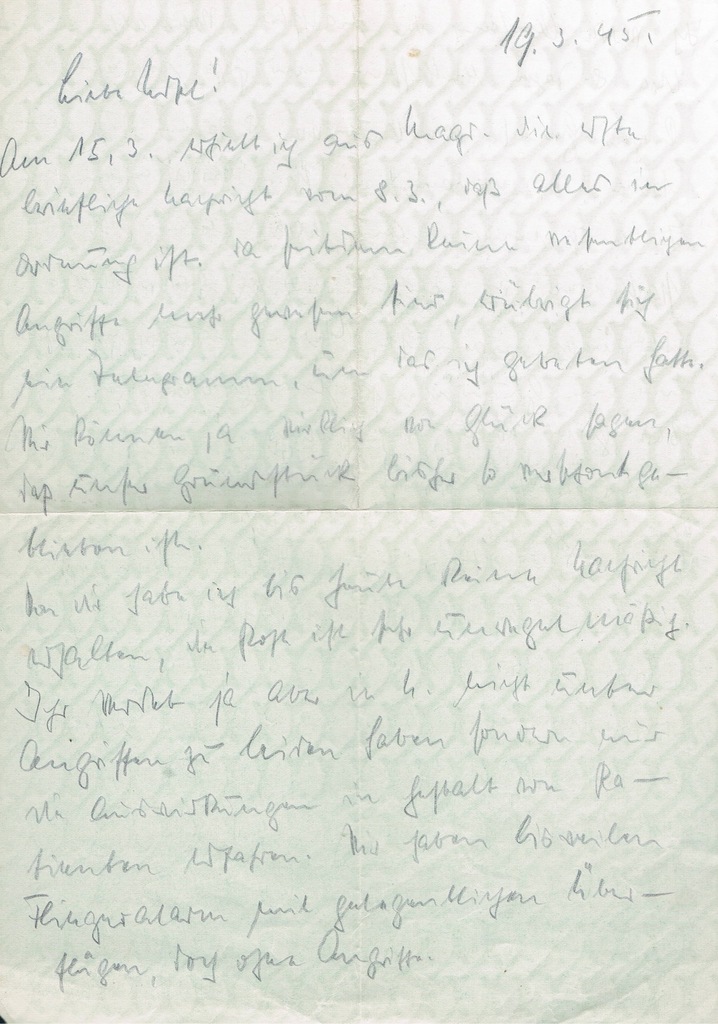 19.3.45.
Liebe Ursel!
Am 15.3. erhielt ich aus Magd. die erste
briefliche Nachricht vom 8.3., daß alles in
Ordnung ist. Da seitdem keine wesentlichen
Angriffe mehr gewesen sind, erübrigt sich
ein Telegramm, um das ich gebeten hatte.
Wir können ja wirklich von Glück sagen,
daß unser Grundstück bisher so verschont ge-
blieben ist.
Von Dir habe ich bis heute keine Nachricht
erhalten, die Post ist sehr unregelmäßig.
Ihr werdet ja aber in H. nicht unter
Angriffen zu leiden haben sondern nur
die Auswirkungen in Gestalt von Pa-
tienten erfahren. Wir haben bisweilen
Fliegeralarm mit gelegentlichen Über-
flügen, doch ohne Angriffe.